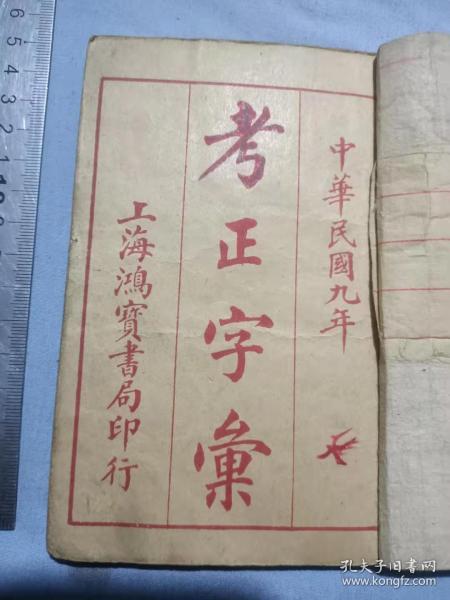 中華民國九年
考正字彙
上海鴻寶書局印行
6 5 4 3 2 1
孔夫子旧书网
www.kongfz.com